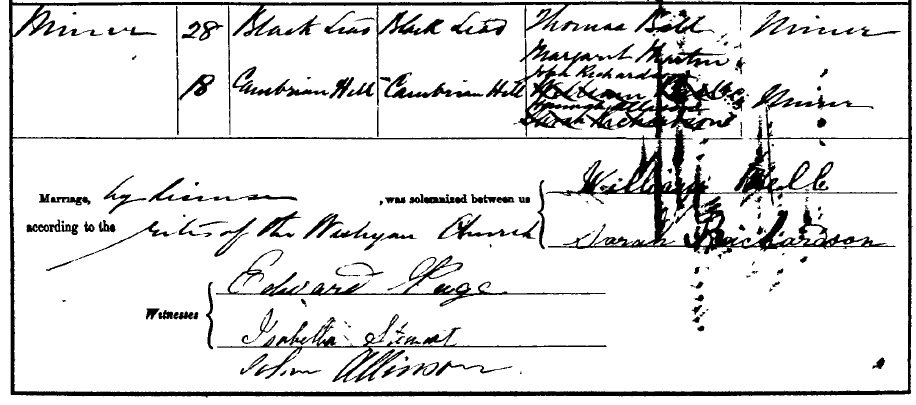 Miner 28 Black Lead Black Lead Thomas Bell Miner
Margaret Martin
John Richardson
18 Cambrian Hill Cambrian Hill Miner
Sarah Richardson
Marriage, by license, was solemnized between us William Bell
according to the rites of the Wesleyan Church Sarah Richardson
Edward Page
Witnesses
Isabella Stewart
John Allinson